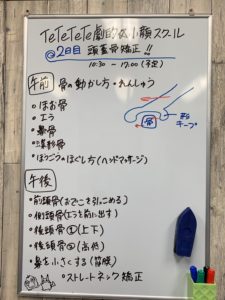 TeTeTeTe劇的小顔スクール
@2日目 頭蓋骨矯正!!
10:30 ~ 17:00(予定)
午前 骨の動かし方・れんしゅう
・ほお骨
・エラ
・鼻骨
・ぼうこつのほぐし方(ハンドマッサージ)
骨
キープ
午後
・前頭骨(おでこを引っこめる)
・側頭骨(エラを前に出す)
・後頭骨①(上下)
・後頭骨②(左右)
・鼻を小さくする(符候)
・ストレートネック矯正